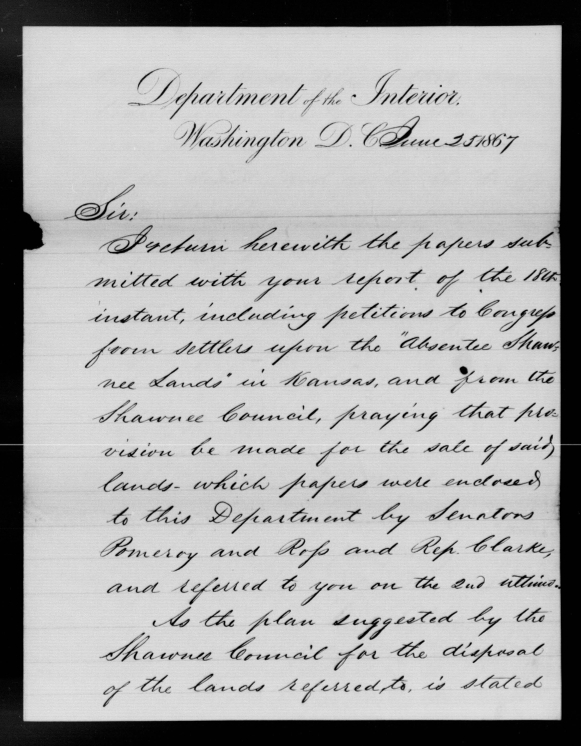 Department of the Interior.
Washington D. C. June 25 1867
Sir:
I return herewith the papers sub-
mitted with your report of the 18th
instant, including petitions to Congress
from settlers upon the "Absentee Shaw-
nee Lands" in Kansas, and from the
Shawnee Council, praying that pro-
vision be made for the sale of said
lands - which papers were enclosed
to this Department by Senators
Pomeroy and Ross and Rep. Clarke,
and referred to you on the 2nd ultimo.
As the plan suggested by the
Shawnee Council for the disposal
of the lands referred to, is stated